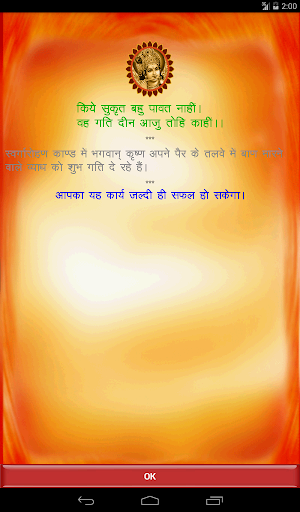 2:00
किये सुकृत बहु पावत नाहीं।
वह गति दीन आजु तोहि काहीं।।
***
काण्ड में भगवान् कृष्ण अपने पैर के तलवे में बाण
व्याध को शुभ गति दे रहे हैं।
***
आपका यह कार्य जल्दी ही सफल हो सकेगा।
OK